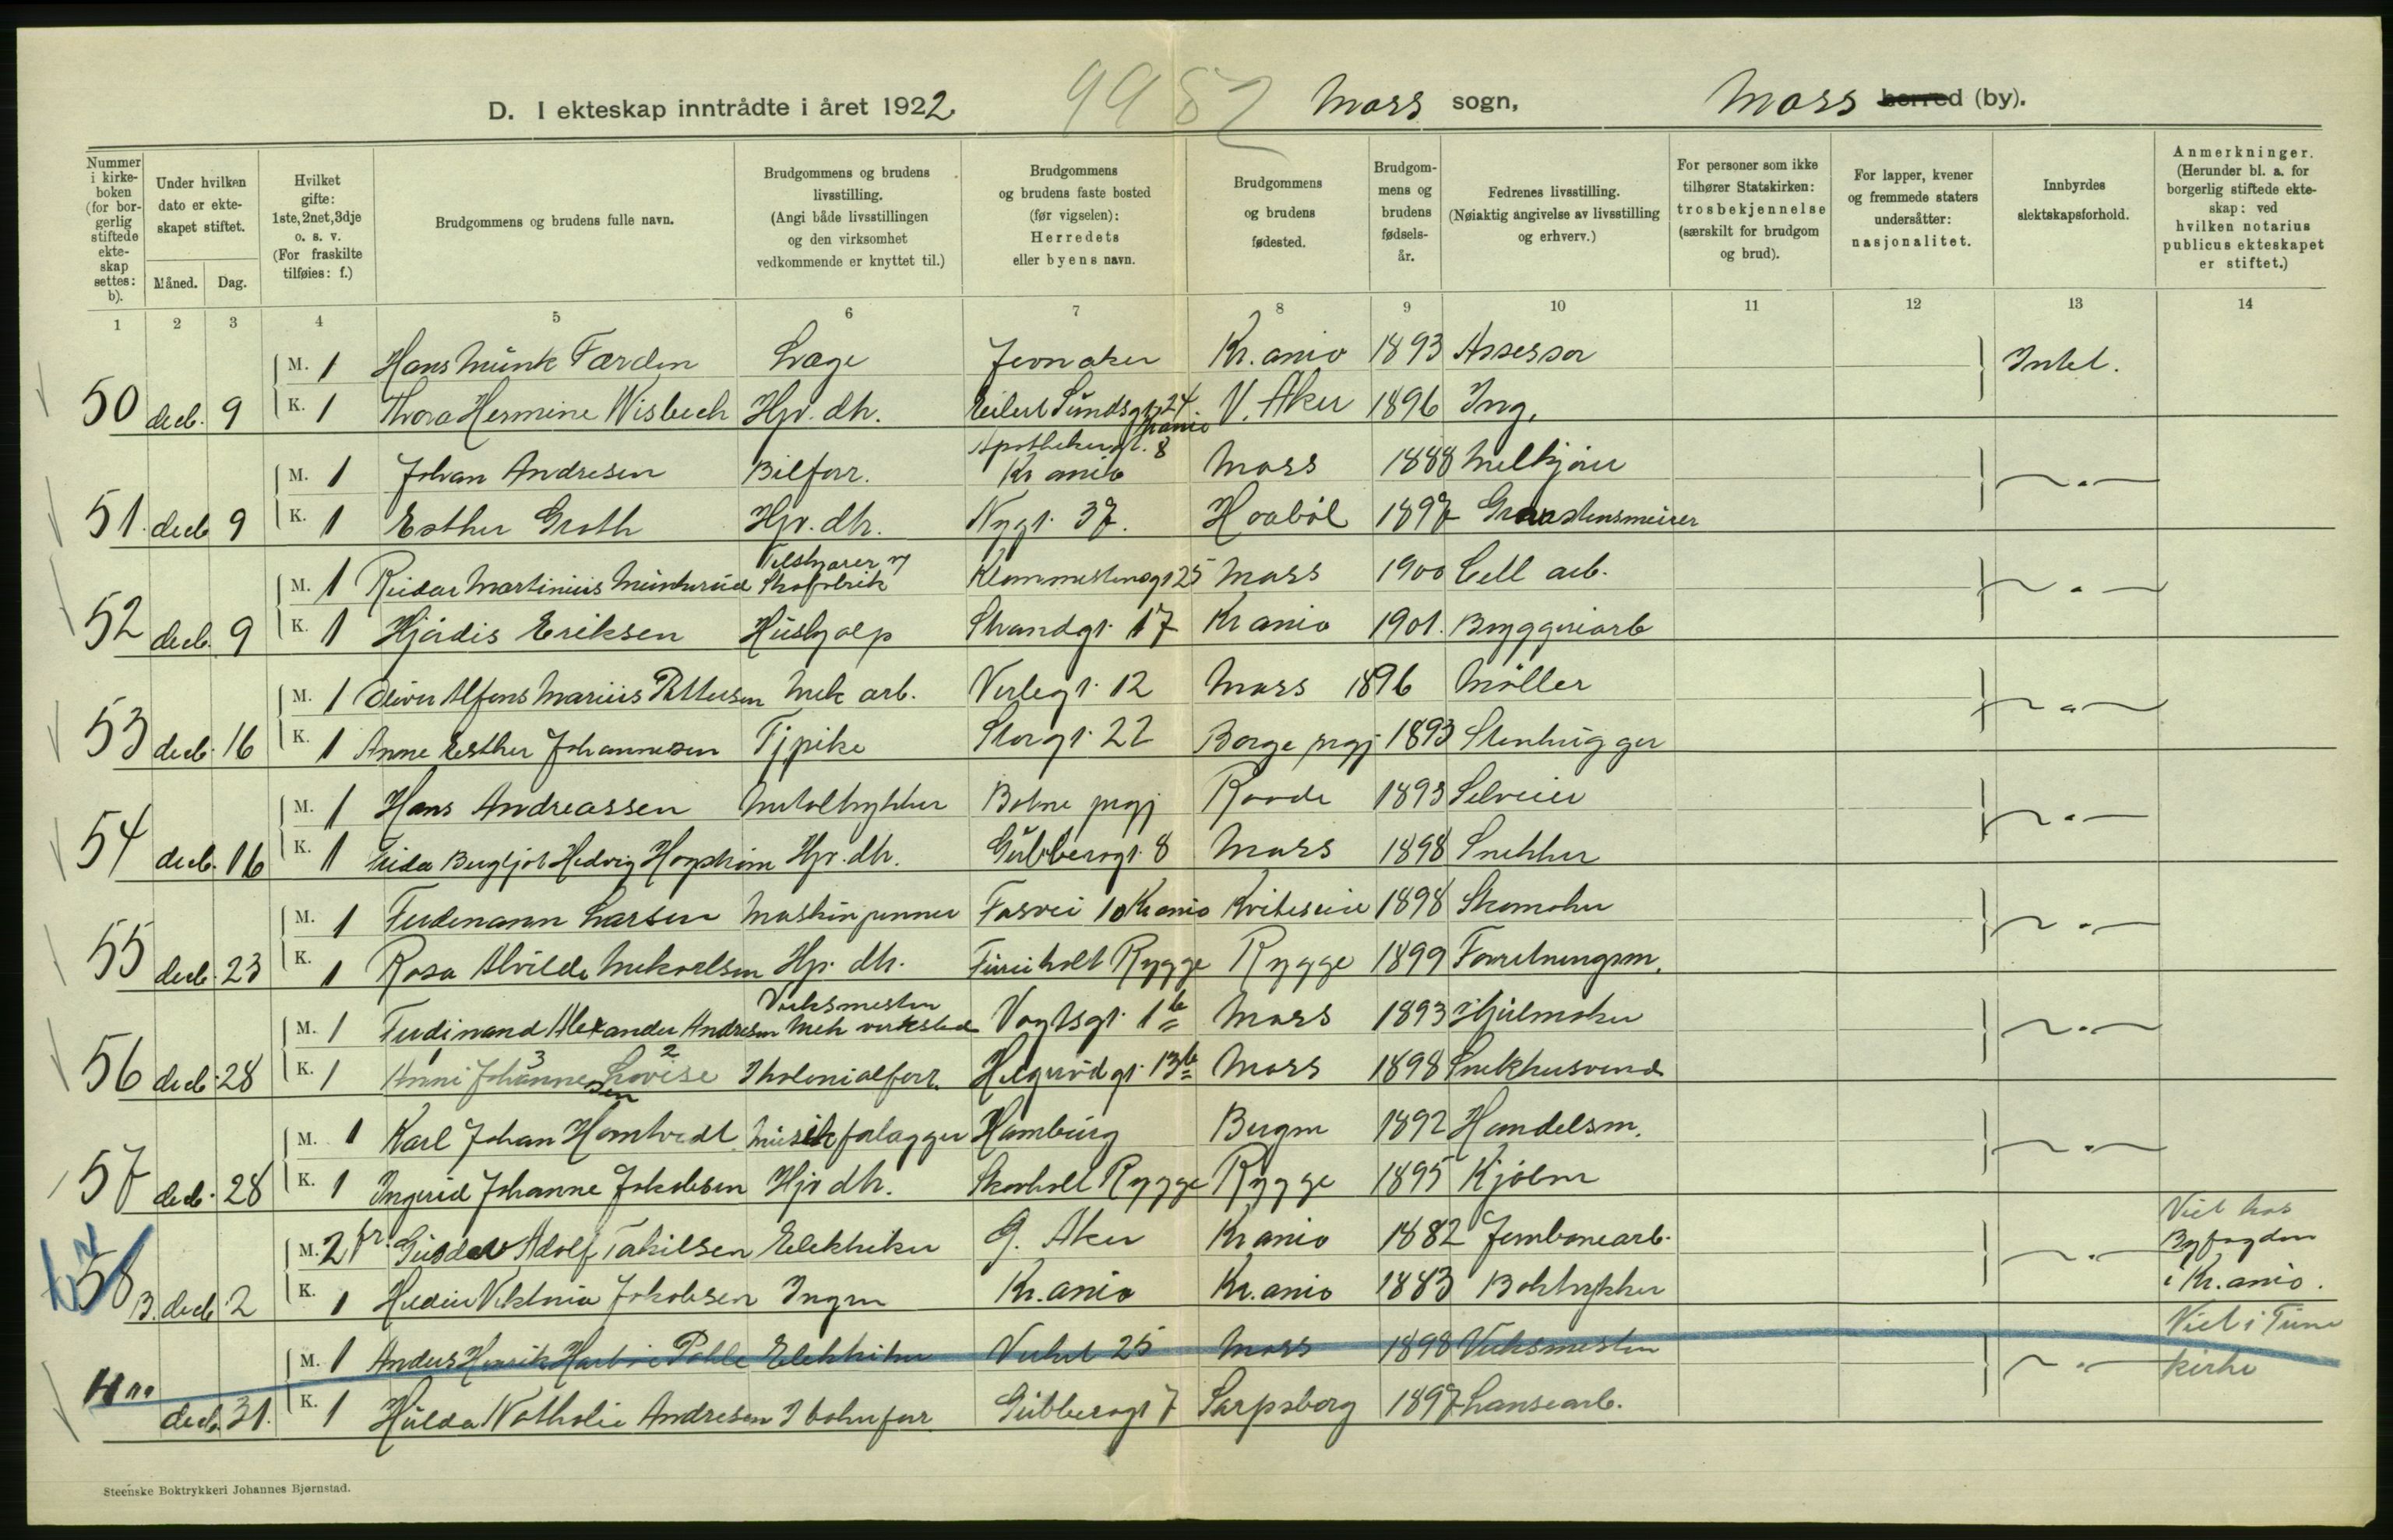 D. I ekteskap inntrådte i året 1922. 9982 Moss sogn, Moss herred (by).
Nummer i kirkeboken (for borgerlig stiftede ekteskap settes: b).
Under hvilken dato er ekteskapet stiftet.
Måned. Dag.
Hvilket gifte: 1ste, 2net, 3dje o. s. v. (For fraskilte tilføies: f.)
Brudgommens og brudens fulle navn.
Brudgommens og brudens livsstilling. (Angi både livsstillingen og den virksomhet vedkommende er knyttet til.)
Brudgommens og brudens faste bosted (før vigselen): Herredets eller byens navn.
Brudgommens og brudens fødested.
Brudgommens og brudens fødselsår.
Fedrenes livsstilling. (Nøiaktig angivelse av livsstilling og erhverv.)
For personer som ikke tilhører Statskirken: trosbekjennelse (særskilt for brudgom og brud).
For lapper, kvener og fremmede staters undersåtter: nasjonalitet.
Innbyrdes slektskapsforhold.
Anmerkninger. (Herunder bl. a. for borgerlig stiftede ekteskap: ved hvilken notarius publicus ekteskapet er stiftet.)
1 2 3 4 5 6 7 8 9 10 11 12 13 14
M. 1 Hans Munk Færden Læge Jevnaker Kr.ania 1893 Assessor Intet.
50 decb. 9 K. 1 Thora Hermine Wisbech Hjv. dtr. Eilert Sundsgt 24. Kr.ania V. Aker 1896 Ing.
M. 1 Johan Andresen Bilforr. Apothekergt. 8 Kr ania Moss 1888 Melkjører
51. decb 9 K. 1 Esther Groth Hjv. dtr. Nygt. 37. Hobøl 1897
M. 1 Reidar Martinius Munkerud Tilskjærer v/ Skofabrik Klommestensgt 25 Moss 1900 Cell arb.
52 decb. 9 K. 1 Hjørdis Eriksen Hushjælp Strandgt. 17 Kr ania 1901. Bryggeriarb
M. 1 Oliver Alfons Marius Pettersen Mek arb. Verlegt. 12 Moss 1896 Møller
53 decb. 16 K. 1 Anne Esther Johannesen Tjpike Storgt. 22 Borge prgj 1893 Stenhugger
M. 1 Hans Andreassen Metaltrykker Botne prgj Raade 1893 Selveier
54 decb. 16 K. 1 Bergljot Hedvig Hjv. dtr. Gubberogt. 8 Moss 1898 Snekker
M. 1 Ferdemann Larsen Maskinjenner Fosvei 10 Kr ania Kviteseie 1898 Skomaker
55 decb. 23 K. 1 Rosa Alvilde Mekaelsen Hjv. dtr. Fureholt Rygge Rygge 1899 Forretningsm.
M. 1 Ferdinand Alexander Andresen Verksmester Mek verksted Vogtsgt. 1 b Moss 1893 Hjulmaker
56 decb. 28 K. 1 Anni Johannesen Lovise I kolonialforr. Helgerødgt. 13b Moss 1898 Snekkersvend
M. 1 Karl Johan Homtvedt Musikforlægger Hamburg Bergen 1892 Handelsm.
57 decb. 28 K. 1 Ingerid Johanne Jakobsen Hjv dtr. Skovholt Rygge Rygge 1895 Kjøbm
M. 2 fr. Gustav Adolf Takilsen Elektriker G. Aker Kr ania 1882 Jernbanearb. Viet hos Byfogden
58 B. decb. 2 K. 1 Viktoria Jakobsen Ingen Kr.ania Kr.ania 1883 Boktrykker i Kr.ania.
M. 1 Anders Henrik Elektriker Verket 25 Moss 1898 Verksmester Viet i Tune kirke
decb. 31. K. 1 Hulda Nathalie Andresen I bakerforr. Gubberogt 7 Sarpsborg 1897 Lansearb.
Steenske Boktrykkeri Johannes Bjørnstad.